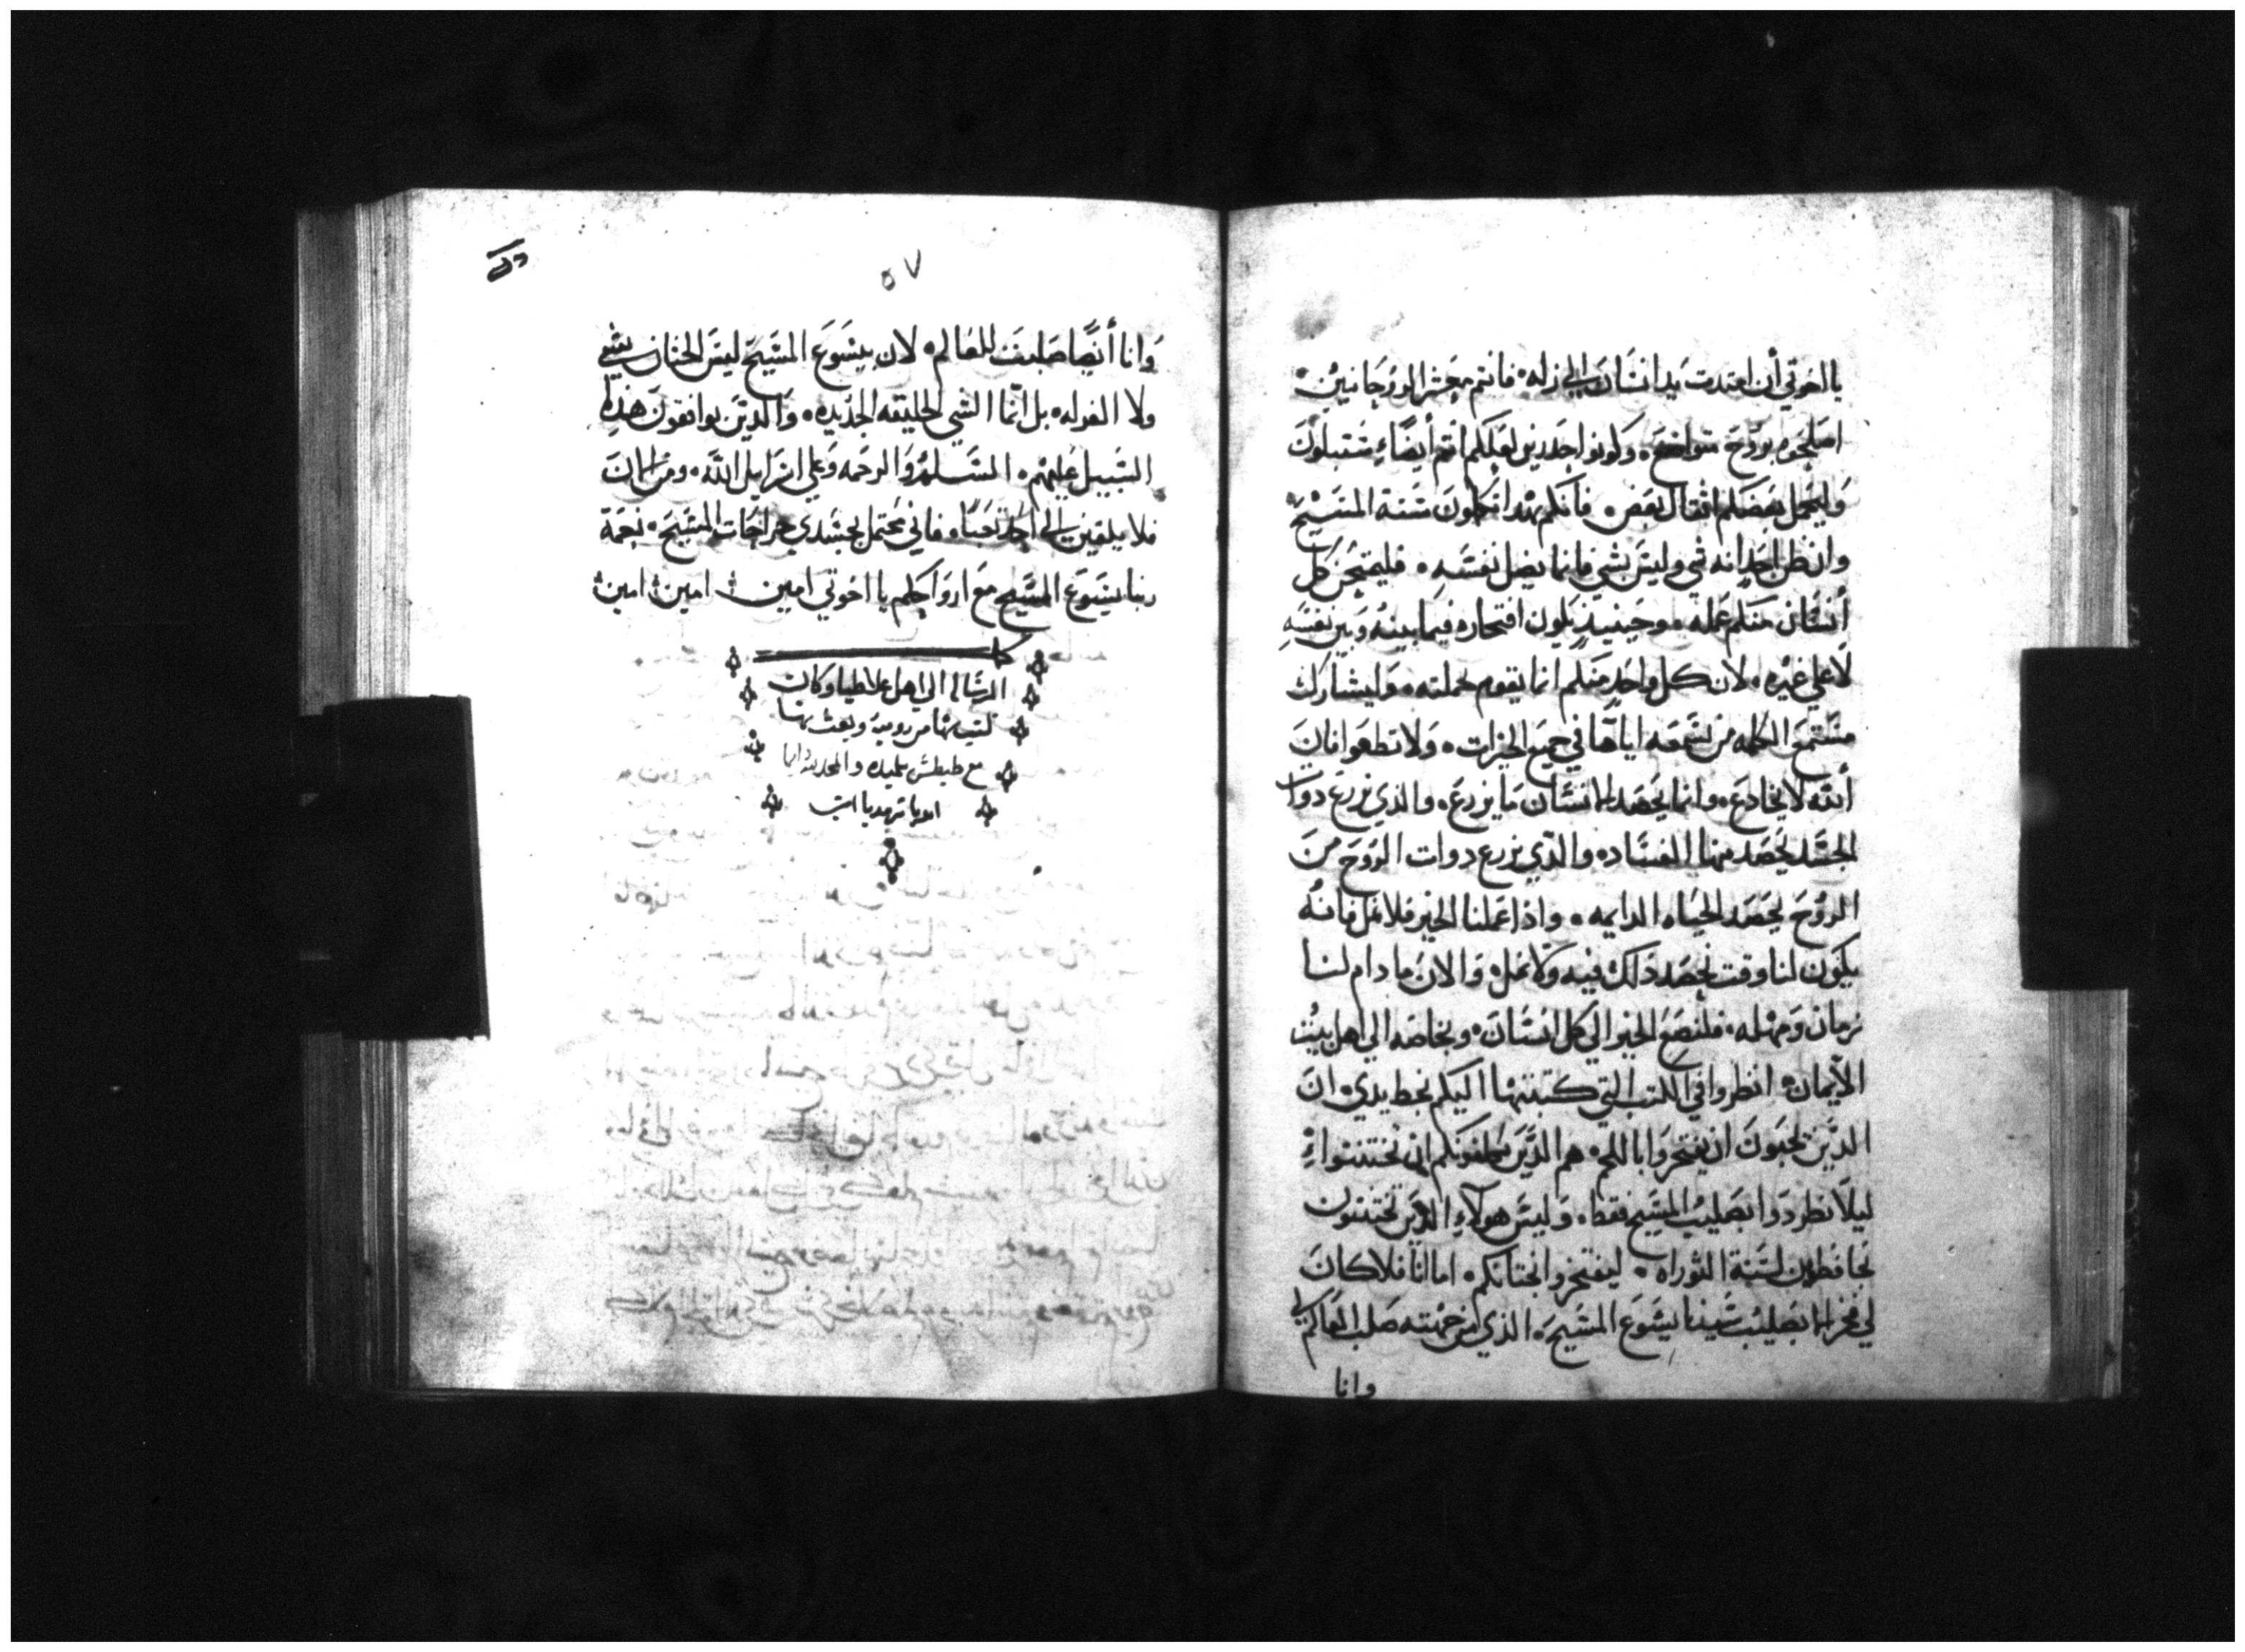 يا اخوتي أن ابتدرت يد انسان الي زله فانتم معشر الروحانيين
اصلحوه بروح متواضعه وكونوا حذرين لعلكم انتم أيضاً ستبتلون
وليحمل بعضكم اثقال بعض فانكم بهذا تكملون سنة المسيح
وان ظن احد انه شي وليس بشي فانما يضل نفسه فليمتحن كل
أنسان منكم عمله وحينيذ يكون افتخاره فيما بينه وبين نفسه
لا علي غيره لان كل واحد منكم انما يقوم بحملته وليشارك
مستمع الكلمه من يسمعه اياها في جميع الخيرات ولا تطغوا فان
ألله لا يخادع وانما يحصد الانسان ما يزرع والذي يزرع دوات
الجسد يحصد منها الفساد والذي يزرع دوات الروح من
الروح يحصد الحياه الدايمه واذا عملنا الخير فلا نمل فانه
يكون لنا وقت نحصد ذلك فيه ولا نمل والان ما دام لنا
زمان ومهله فلنصنع الخير الي كل انسان وبخاصه الي اهل بيت
الايمان انظروا في الكتب التي كتبتها اليكم بخط يدي ان
الذين يحبون ان يفتخروا باللحم هم الذين يكلفونكم ان تختتنوا
ليلا يطردوا بصليب المسيح فقط وليس هولاء الذين يختتنون
بحافظين لسنة التوراه ليفتخروا بختانكم اما انا فلا كان
لي فخر الا بصليب سيدنا يسوع المسيح الذي من جهته صلب العالم لي
وانا
٥٧
وانا أيضاً صلبت للعالم لان بيسوع المسيح ليس الختان بشي
ولا الغرله بل انما الشي الخليقه الجديده والذين يوافقون هذه
السبيل عليهم السلام والرحمه وعلي ال اسرايل الله ومن الان
فلا يلقين الي احد تعباً فاني محتمل بجسدي جراحات المسيح نعمة
ربنا يسوع المسيح مع ارواحكم يا اخوتي امين امين امين
الرساله الي اهل غلاطيا وكان
كتب بها من روميه وبعث بها
مع طيطس تلميده والحمد لله دايما